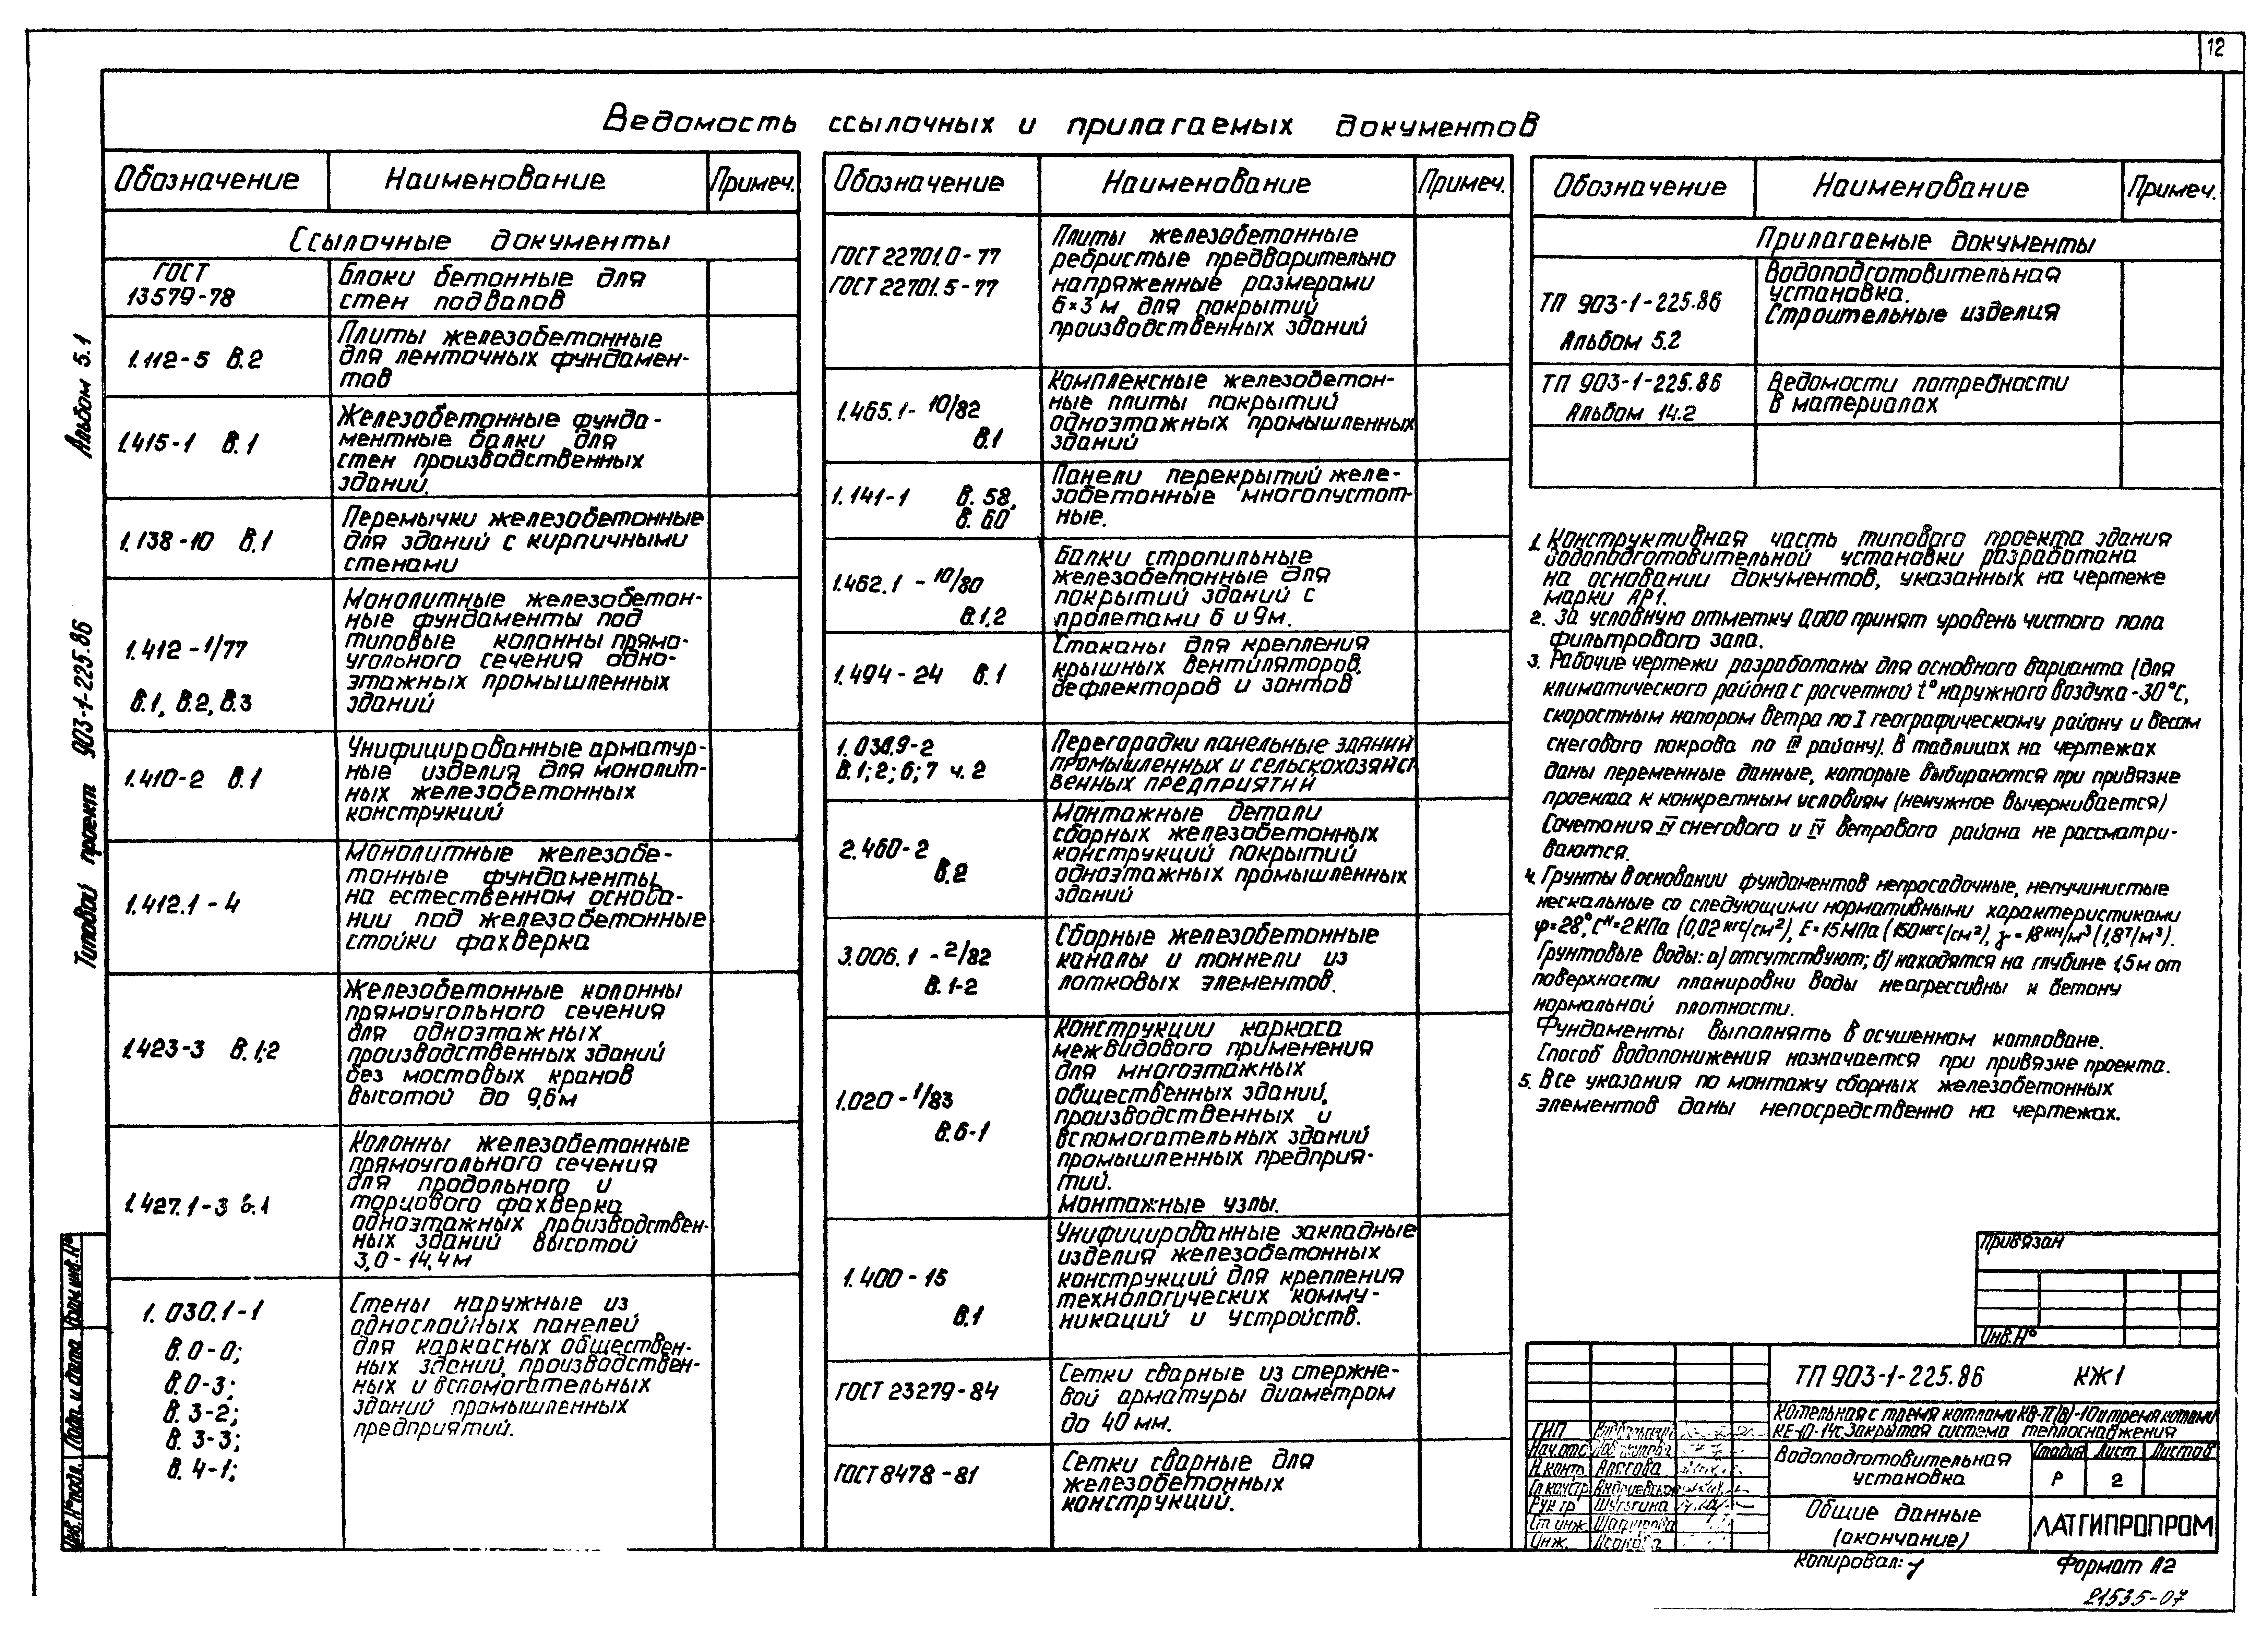 12
Ведомость ссылочных и прилагаемых документов
Обозначение Наименование Примеч.
Ссылочные документы
ГОСТ
13579-78
Блоки бетонные для
стен подвалов
1.112-5 В.2
Плиты железобетонные
для ленточных фундамен-
тов
1.415-1 В.1
Железобетонные фунда-
ментные балки для
стен производственных
зданий.
1.138-10 В.1
Перемычки железобетонные
для зданий с кирпичными
стенами
1.412-1/77
В.1, В.2, В.3
Монолитные железобетон-
ные фундаменты под
типовые колонны прямо-
угольного сечения одно-
этажных промышленных
зданий
1.410-2 В.1
Унифицированные арматур-
ные изделия для монолит-
ных железобетонных
конструкций
1.412.1-4
Монолитные железобе-
тонные фундаменты
на естественном основа-
нии под железобетонные
стойки фахверка
1.423-3 В.1;2
Железобетонные колонны
прямоугольного сечения
для одноэтажных
производственных зданий
без мостовых кранов
высотой до 9,6м
1.427.1-3 в.1
Колонны железобетонные
прямоугольного сечения
для продольного и
торцового фахверка
одноэтажных производствен-
ных зданий высотой
3,0-14,4м
1.030.1-1
В.0-0;
В.0-3;
В.3-2;
В.3-3;
В.4-1;
Стены наружные из
однослойных панелей
для каркасных обществен-
ных зданий, производствен-
ных и вспомогательных
зданий промышленных
предприятий.
Обозначение Наименование Примеч.
ГОСТ 22701.0-77
ГОСТ 22701.5-77
Плиты железобетонные
ребристые предварительно
напряженные размерами
6×3м для покрытий
производственных зданий
1.465.1-10/82
В.1
Комплексные железобетон-
ные плиты покрытий
одноэтажных промышленных
зданий
1.141-1 В.58,
В.60
Панели перекрытий желе-
зобетонные многопустот-
ные.
1.462.1-10/80
В.1,2
Балки стропильные
железобетонные для
покрытий зданий с
пролетами 6 и 9м.
1.494-24 В.1
Стаканы для крепления
крышных вентиляторов,
дефлекторов и зонтов
1.030.9-2
В.1; 2; 6; 7 ч.2
Перегородки панельные зданий
промышленных и сельскохозяйст
венных предприятий
2.460-2
В.2
Монтажные детали
сборных железобетонных
конструкций покрытий
одноэтажных промышленных
зданий
3.006.1-2/82
В.1-2
Сборные железобетонные
каналы и тоннели из
лотковых элементов.
1.020-1/83
В.6-1
Конструкции каркаса
межвидового применения
для многоэтажных
общественных зданий,
производственных и
вспомогательных зданий
промышленных предприя-
тий.
Монтажные узлы.
1.400-15
В.1
Унифицированные закладные
изделия железобетонных
конструкций для крепления
технологических комму-
никаций и устройств.
ГОСТ 23279-84
Сетки сварные из стержне-
вой арматуры диаметром
до 40 мм.
ГОСТ 8478-81
Сетки сварные для
железобетонных
конструкций.
Обозначение Наименование Примеч.
Прилагаемые документы
ТП 903-1-225.86
Альбом 5.2
Водоподготовительная
установка.
Строительные изделия
ТП 903-1-225.86
Альбом 14.2
Ведомости потребности
в материалах
1. Конструктивная часть типового проекта здания
водоподготовительной установки разработана
на основании документов, указанных на чертеже
марки АР1.
2. За условную отметку 0,000 принят уровень чистого пола
фильтрового зала.
3. Рабочие чертежи разработаны для основного варианта (для
климатического района с расчетной t° наружного воздуха -30°С,
скоростным напором ветра по I географическому району и весом
снегового покрова по III району). В таблицах на чертежах
даны переменные данные, которые выбираются при привязке
проекта к конкретным условиям (ненужное вычеркивается)
Сочетания IV снегового и IV ветрового района не рассматри-
ваются.
4. Грунты в основании фундаментов непросадочные, непучинистые
нескальные со следующими нормативными характеристиками
φ=28°, Сᴴ=2кПа (0,02 кгс/см²), Е=15МПа (150 кгс/см²), γ=18кн/м³ (1,8т/м³).
Грунтовые воды: а) отсутствуют; б) находятся на глубине 1,5м от
поверхности планировки воды неагрессивны к бетону
нормальной плотности.
Фундаменты выполнять в осушенном котловане.
Способ водопонижения назначается при привязке проекта.
5. Все указания по монтажу сборных железобетонных
элементов даны непосредственно на чертежах.
Привязан
Инв.№
ТП 903-1-225.86 КЖ1
Котельная с тремя котлами КВ-ТС(В)-10 и тремя котлами
КЕ-10-14с. Закрытая система теплоснабжения
Водоподготовительная
установка
Стадия Лист Листов
Р 2
Общие данные
(окончание)
ЛАТГИПРОПРОМ
ГИП
Нач.отд
Н.контр. Апогова
Гл.констр
Рук.гр Шулыгина
Ст.инж.
Инж.
Копировал:
Формат А2
21535-07
Типовой проект 903-1-225.86 Альбом 5.1
Инв.№ подл. Подп. и дата Взам.инв.№